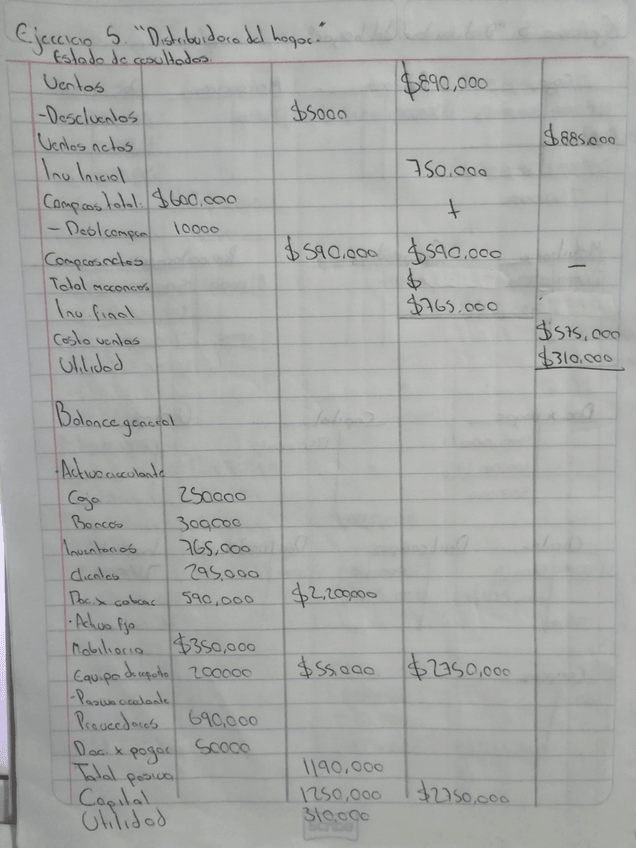 Ejercicio 5. "Distribuidora del hogar."
Estado de resultados.
Ventas $890,000
-Descuentos $5000
Ventas netas $885.000
Inv Inicial 750.000
Compras total: $600,000 +
- Des/compra 10000
Compras netas $590,000 $590,000 -
Total mercancias $
Inv final $765.000
Costo ventas $575,000
Utilidad $310,000
Balance general
·Activo circulante
Caja 250000
Bancos 300,000
Inventarios 765,000
clientes 295,000
Doc x cobrar 590,000 $2,200,000
·Activo fijo
Mobiliario $350,000
Equipo de reparto 200000 $55.000 $2750,000
·Pasivo circulante
Proveedores 690,000
Doc x pagar 50000
Total pasivo 1190,000
Capital 1250,000 $2750,000
Utilidad 310,000
scribe